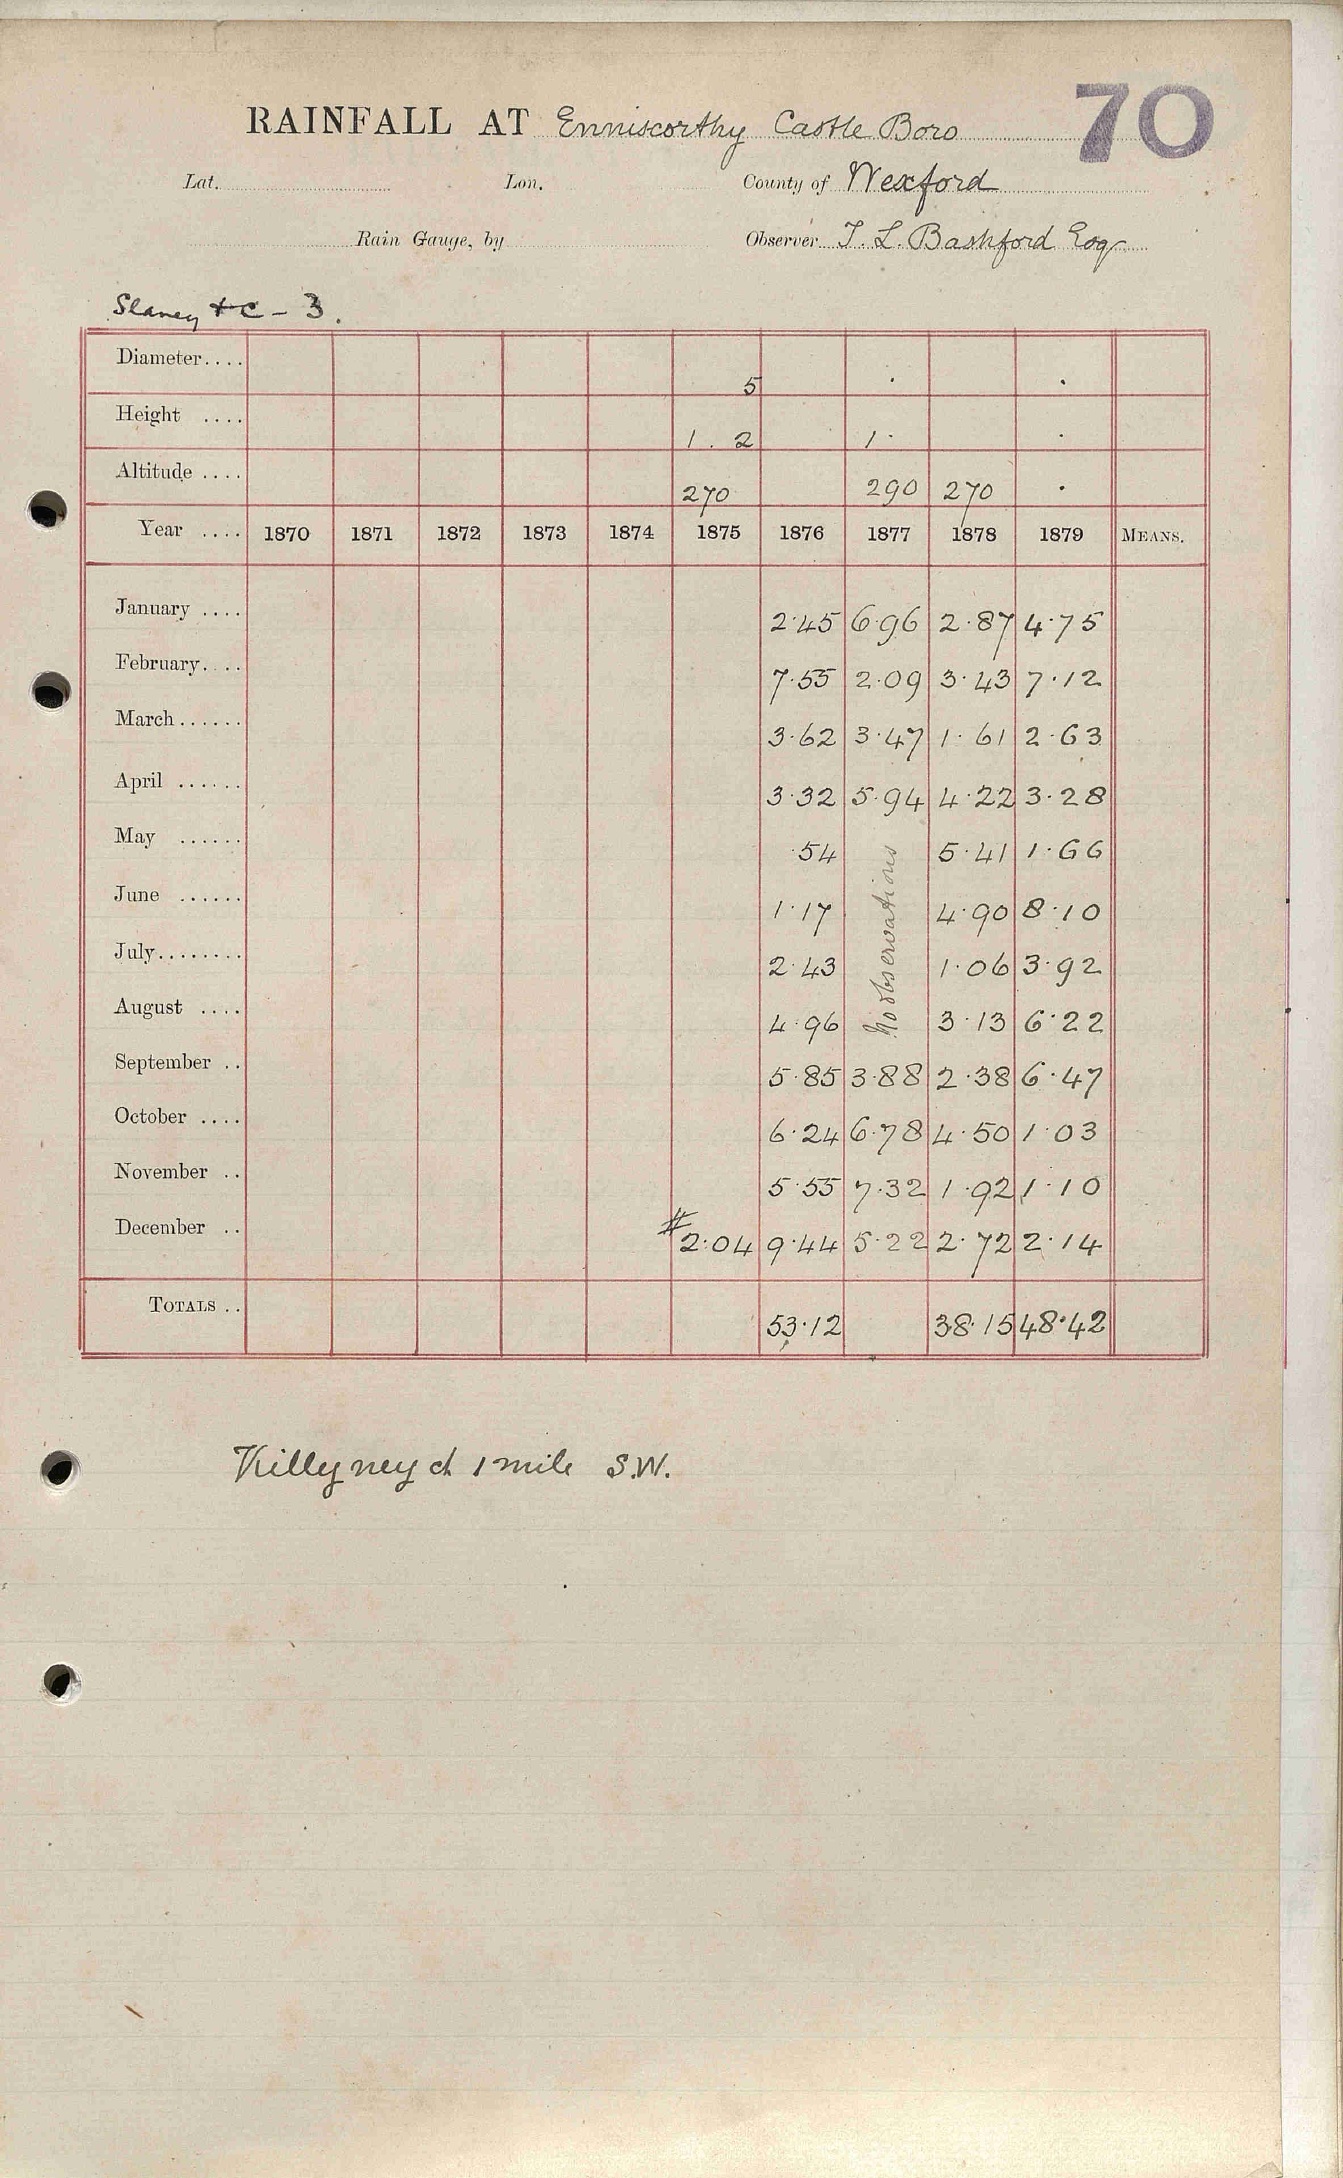 70
RAINFALL AT Enniscorthy Castle Boro
Lat. Lon. County of Wexford
Rain Gauge, by Observer T. L. Bashford Esq
Slaney &c - 3.
Diameter.... 5 . .
Height .... 1 . 2 1 . .
Altitude .... 270 290 270 .
Year .... 1870 1871 1872 1873 1874 1875 1876 1877 1878 1879 MEANS.
January .... 2.45 6.96 2.87 4.75
February.... 7.55 2.09 3.43 7.12
March...... 3.62 3.47 1.61 2.63
April ...... 3.32 5.94 4.22 3.28
May ...... .54 5.41 1.66
June ...... 1.17 4.90 8.10
July........ 2.43 1.06 3.92
August .... 4.96 3.13 6.22
No observations
September .. 5.85 3.88 2.38 6.47
October .... 6.24 6.78 4.50 1.03
November .. 5.55 7.32 1.92 1.10
December .. # 2.04 9.44 5.22 2.72 2.14
TOTALS .. 53.12 38.15 48.42
1 mile S.W.